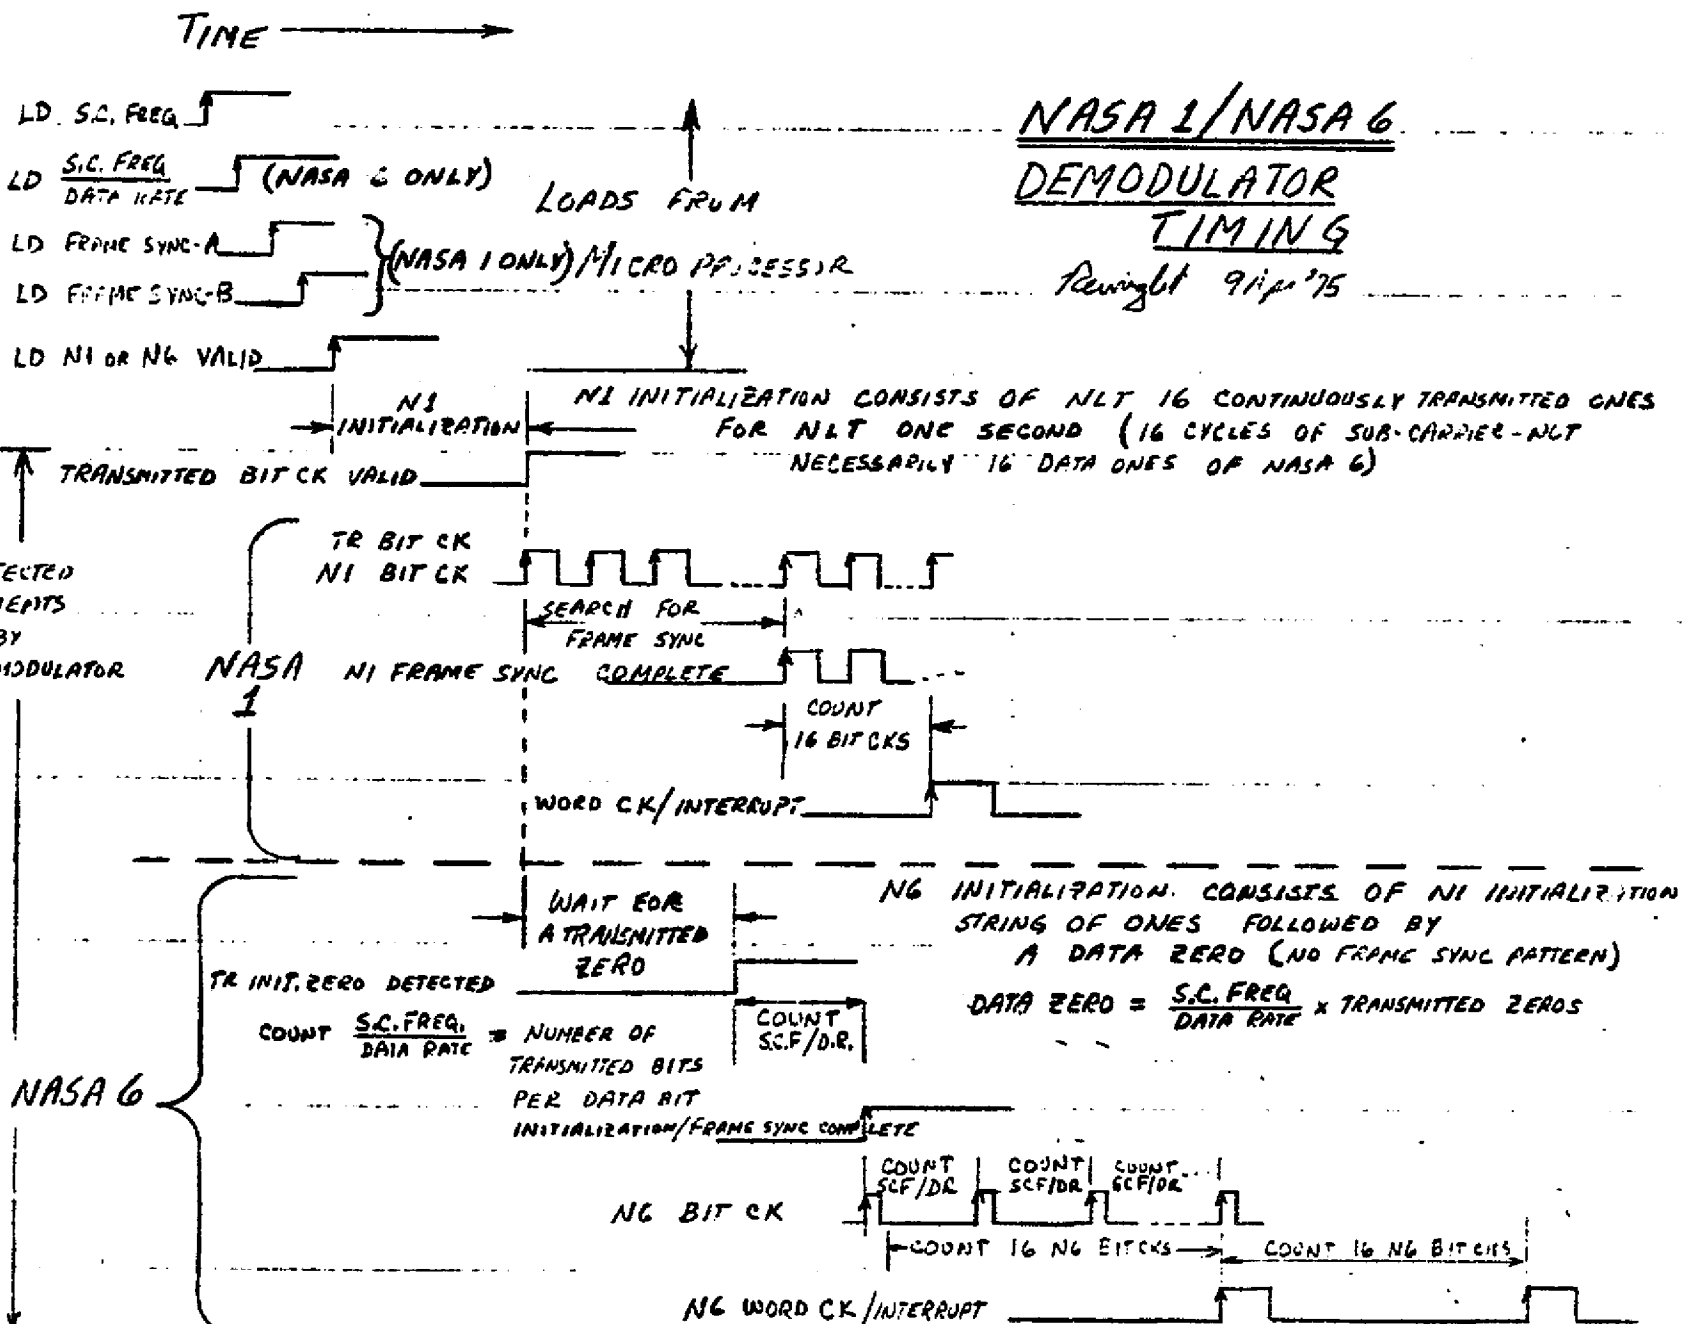 TIME
NASA 1/NASA 6
DEMODULATOR
TIMING
9 Apr '75
LD. S.C. FREQ
LD S.C. FREQ / DATA RATE (NASA 6 ONLY)
LOADS FROM
LD FRAME SYNC-A
(NASA 1 ONLY) MICRO PROCESSOR
LD FRAME SYNC-B
LD N1 OR N6 VALID
N1
INITIALIZATION
N1 INITIALIZATION CONSISTS OF NLT 16 CONTINUOUSLY TRANSMITTED ONES
FOR NLT ONE SECOND (16 CYCLES OF SUB-CARRIER-NOT
NECESSARILY 16 DATA ONES OF NASA 6)
TRANSMITTED BIT CK VALID
TECTED
BY
MODULATOR
NASA
1
TR BIT CK
N1 BIT CK
SEARCH FOR
FRAME SYNC
N1 FRAME SYNC COMPLETE
COUNT
16 BIT CKS
WORD CK/INTERRUPT
WAIT FOR
A TRANSMITTED
ZERO
N6 INITIALIZATION. CONSISTS OF N1 INITIALIZATION
STRING OF ONES FOLLOWED BY
A DATA ZERO (NO FRAME SYNC PATTERN)
DATA ZERO = S.C. FREQ / DATA RATE x TRANSMITTED ZEROS
TR INIT. ZERO DETECTED
COUNT S.C. FREQ. / DATA RATE = NUMBER OF
TRANSMITTED BITS
PER DATA BIT
COUNT
S.C.F/D.R.
NASA 6
INITIALIZATION/FRAME SYNC COMPLETE
COUNT
SCF/DR
COUNT
SCF/DR
COUNT
SCF/DR
N6 BIT CK
COUNT 16 N6 BIT CKS
COUNT 16 N6 BIT CKS
N6 WORD CK/INTERRUPT